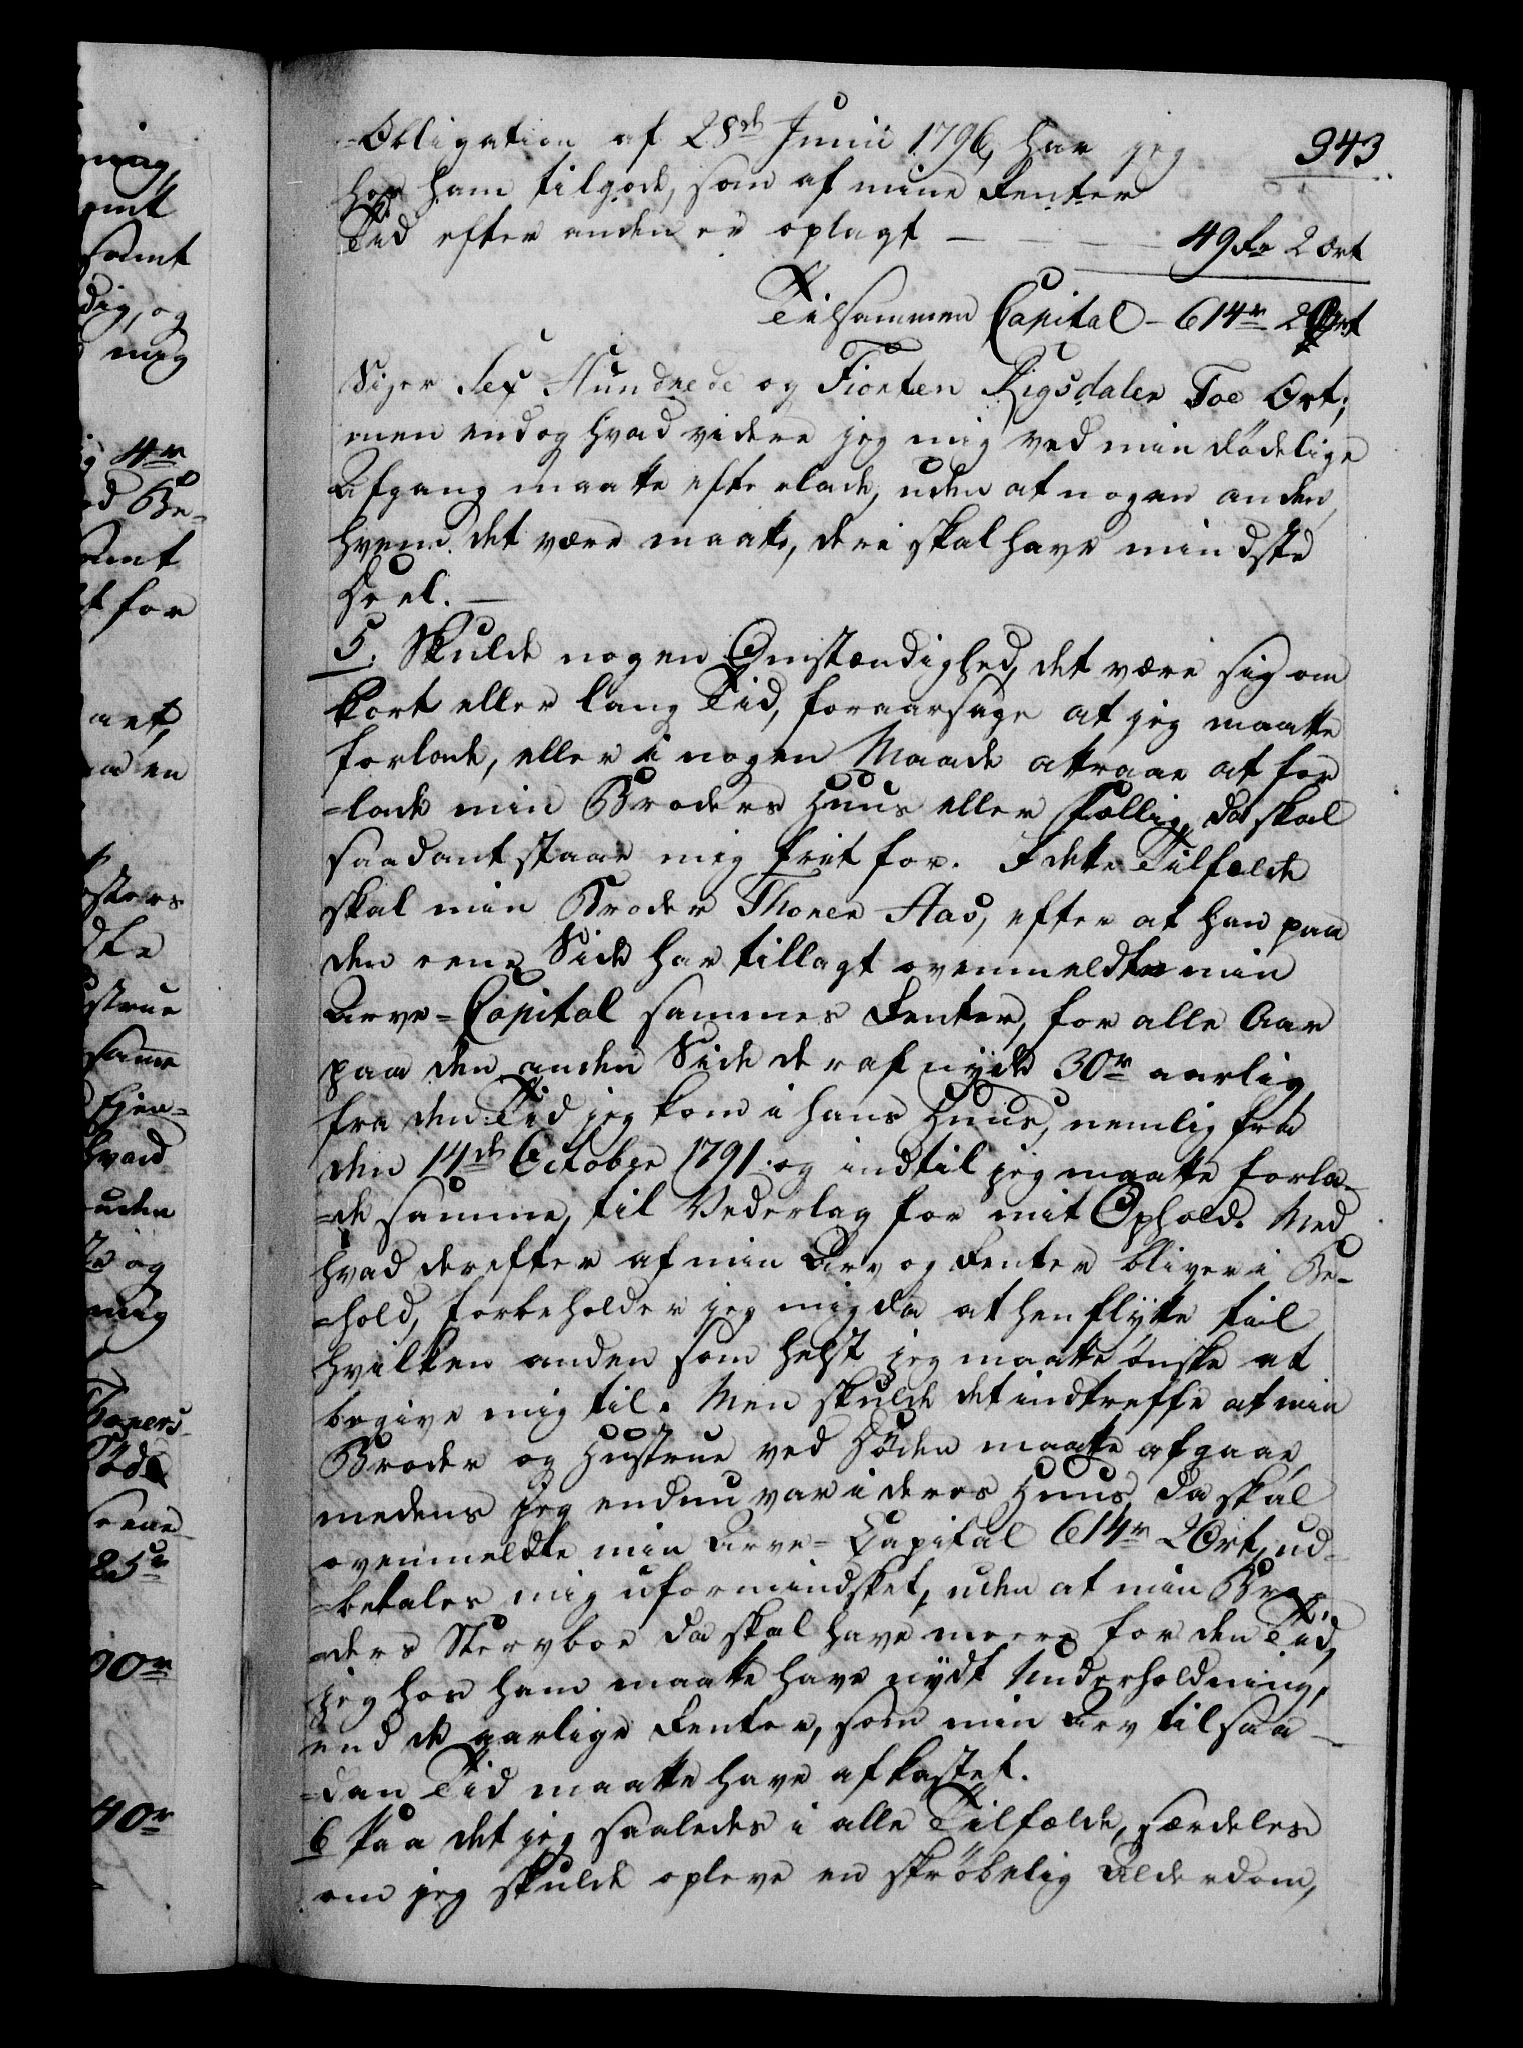 943
=Obligation af 28de Junii 1796, har jeg
hos ham tilgode, som af mine Renter
Tid efter anden er oplagt — — — — 49 Rr 2 Ort
Tilsammen Capital – 614r 2 Ort
Siger Sex Hundrede og Fiorten Rigsdaler Toe Ort;
men endog hvad videre jeg mig ved min dødelige
Afgang maatte efterlade, uden at nogen anden,
hvem det være maatte, deri skal have mindste
Deel. —
5. Skulde nogen Omstændighed, det være sig om
kort eller lang Tid, foraarsage at jeg maatte
forlade, eller i nogen Maade attraae at for
=lade min Broders Huus eller Fællig, da skal
saadant staae mig frit for. I dette Tilfælde
skal min Broder Thorer Aas, efter at han paa
den eene Side har tillagt ovenmeldte min
Arve=Capital sammes Renter, for alle Aar
paa den anden Side deraf nyde 30r aarlig
fra den Tid jeg kom i hans Huus, nemlig fra
den 14de October 1791. og indtil jeg maatte forla=
=de samme, til Vederlag for mit Ophold. Med
hvad derefter af min Arv og Renter bliver i Be=
=hold, forbeholder jeg mig da at henflytte til
hvilken anden som helst jeg maatte ønske at
begive mig til. Men skulde det indtreffe at min
Broder og Hustrue ved Døden maatte afgaae,
medens jeg endnu var i deres Huus, da skal
ovenmeldte min Arve=Capital 614r 2 Ort, ud=
=betales mig uformindsket, uden at min Bro=
=ders Stervboe da skal have meere for den Tid,
jeg hos ham maatte have nydt Underholdning,
end de aarlige Renter, som min Arv til saa=
=dan Tid maatte have afkastet.
6 Paa det jeg saaledes i alle Tilfælde, særdeles
om jeg skulde opleve en skrøbelig Alderdom,